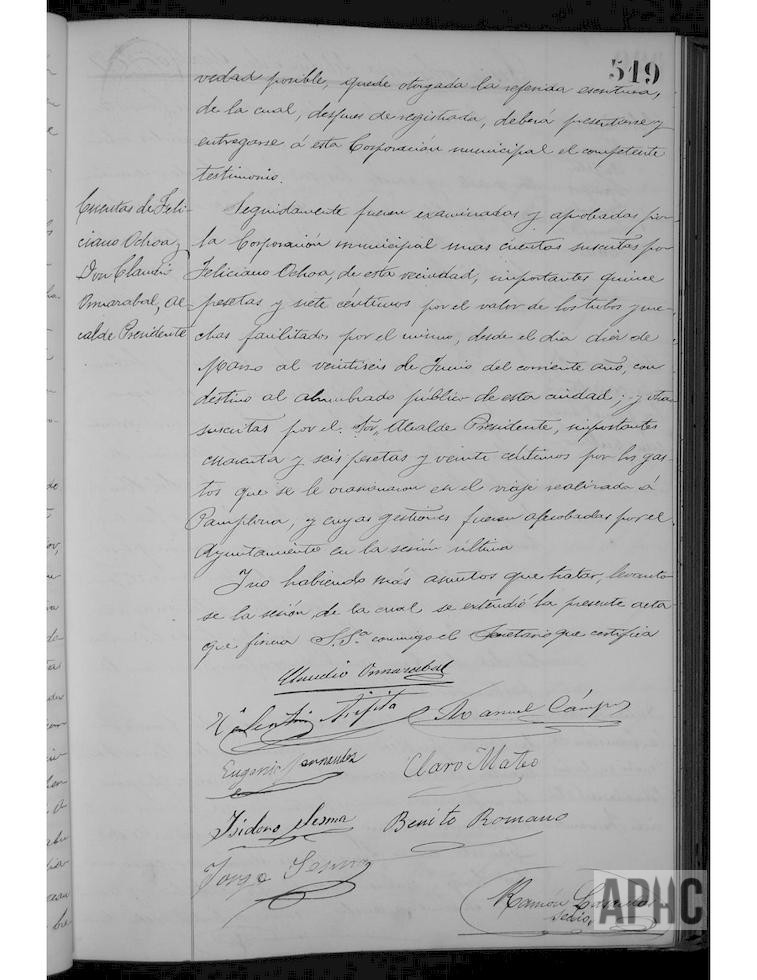 519
vedad posible, quede otorgada la referida escritura,
de la cual, despues de registrada, deberá presentarse y
entregarse á esta Corporación municipal el competente
testimonio.
Cuentas de Feli-
ciano Ochoa y
Don Claudio
Onsarabal, Al-
calde Presidente
Seguidamente fueron examinadas y aprobadas por
la Corporación municipal unas cuentas suscritas por
Feliciano Ochoa, de esta vecindad, importantes quince
pesetas y siete céntimos por el valor de los tubos y me-
chas facilitados por el mismo, desde el dia diez de
Marzo al veintiseis de Junio del corriente año, con
destino al alumbrado público de esta ciudad; y otra
suscritas por el Sor. Alcalde Presidente, importantes
cuarenta y seis pesetas y veinte céntimos por los gas-
tos que se le ocasionaron en el viaje realizado á
Pamplona, y cuyas gestiones fueron aprobadas por el
Ayuntamiento en la sesión última
Y no habiendo más asuntos que tratar, levanto-
se la sesión, de la cual se extendió la presente acta
que firma S.Sa. conmigo el Secretario que certifica
Claudio Onsarabal
Manuel Campos
Eugenio Fernandez
Claro Mateo
Isidoro Sesma
Benito Romano
Jorge Sesma
Ramón
Secrio.
APHC